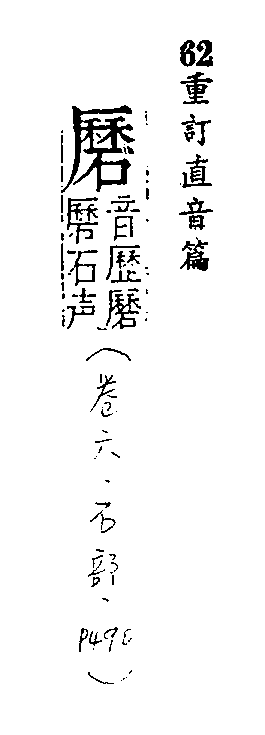 62重訂直音篇
磿
音歷磿
石声
（卷六、石部、P490）